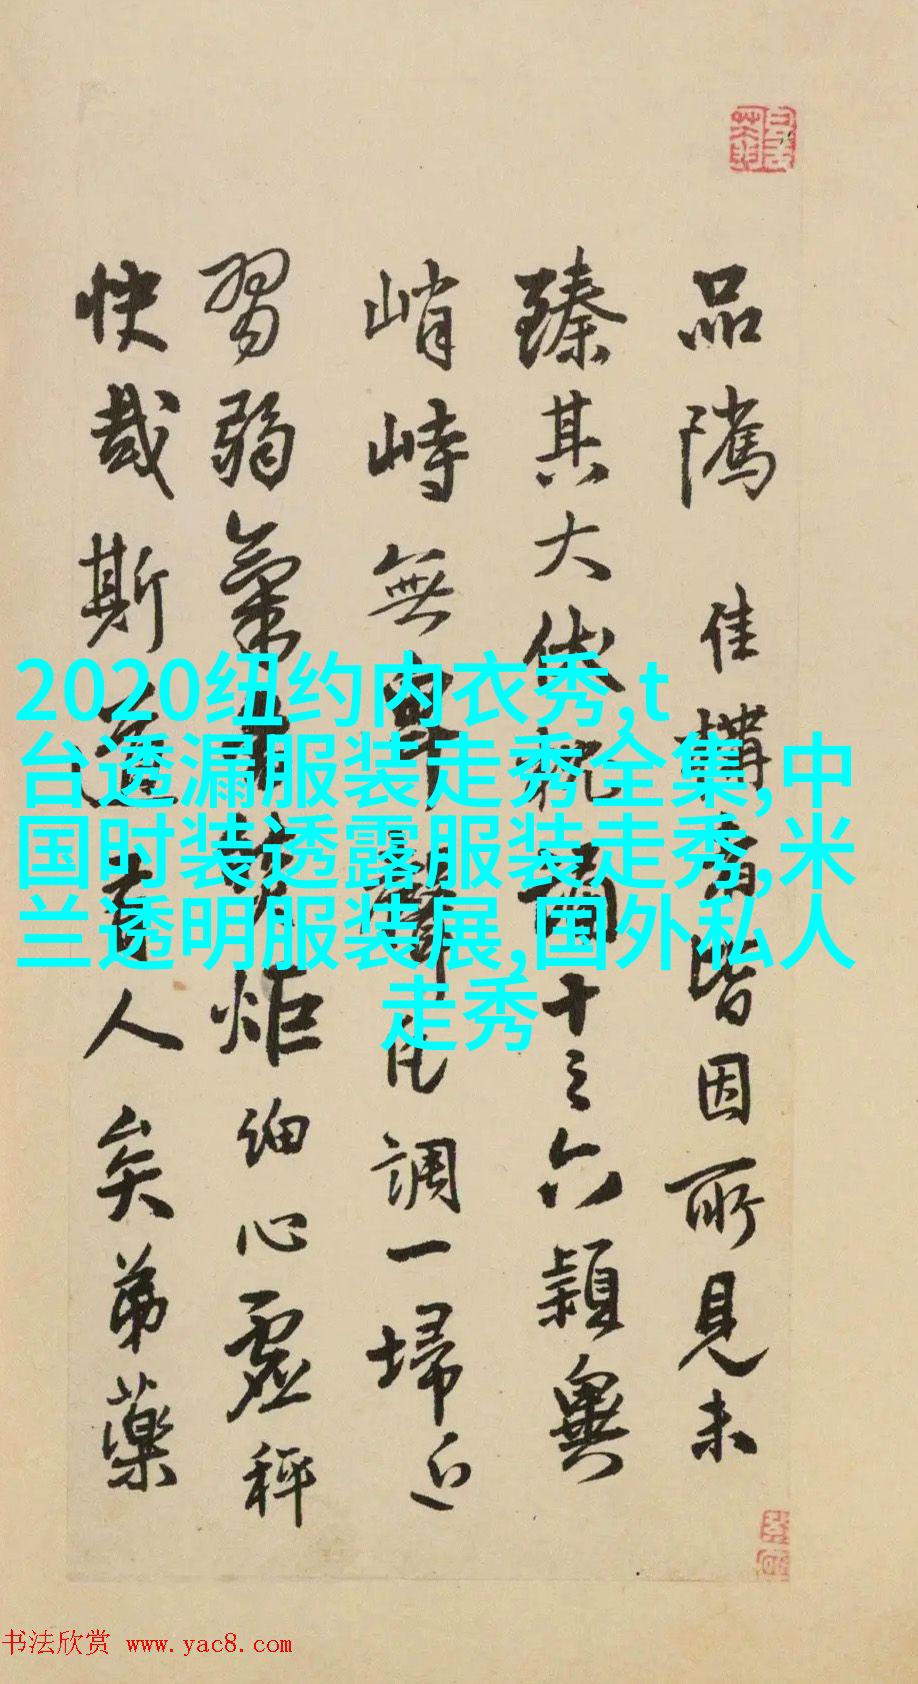 品隲佳構者皆因所見未
臻其大伏觀圖十之六穎異
峭峙無卑馨凡調一埽近
習弱氣
炬細心虛秤
快哉斯道
人矣弟藥
2020纽约内衣秀,t
台透漏服装走秀全集,中
国时装透露服装走秀,米
兰透明服装展,国外私人
走秀
书法欣赏 www.yac8.com